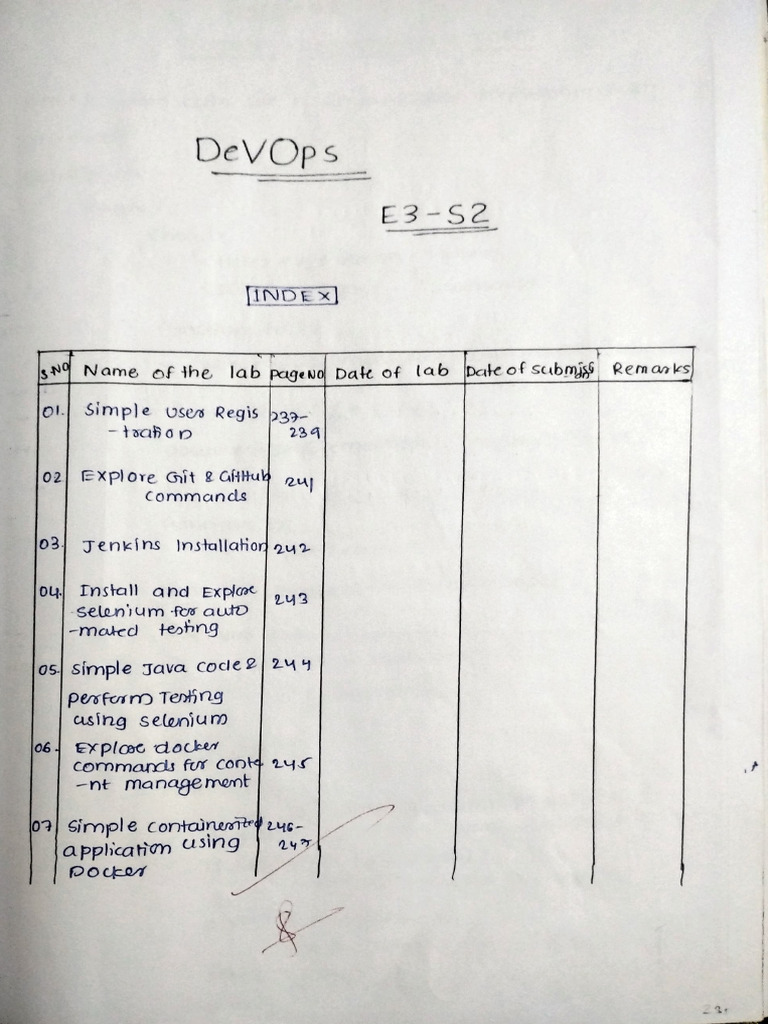 DevOps
E3-S2
INDEX
S.NO Name of the lab Page NO Date of lab Date of submission Remarks
01. Simple User Regis 237-
-tration 239
02 Explore Git & GitHub 241
commands
03. Jenkins Installation 242
04. Install and Explore 243
selenium for auto
-mated testing
05. Simple Java code & 244
perform Testing
using selenium
06. Explore docker
commands for conte 245
-nt management
07 Simple containerized 246-
application using 247
Docker